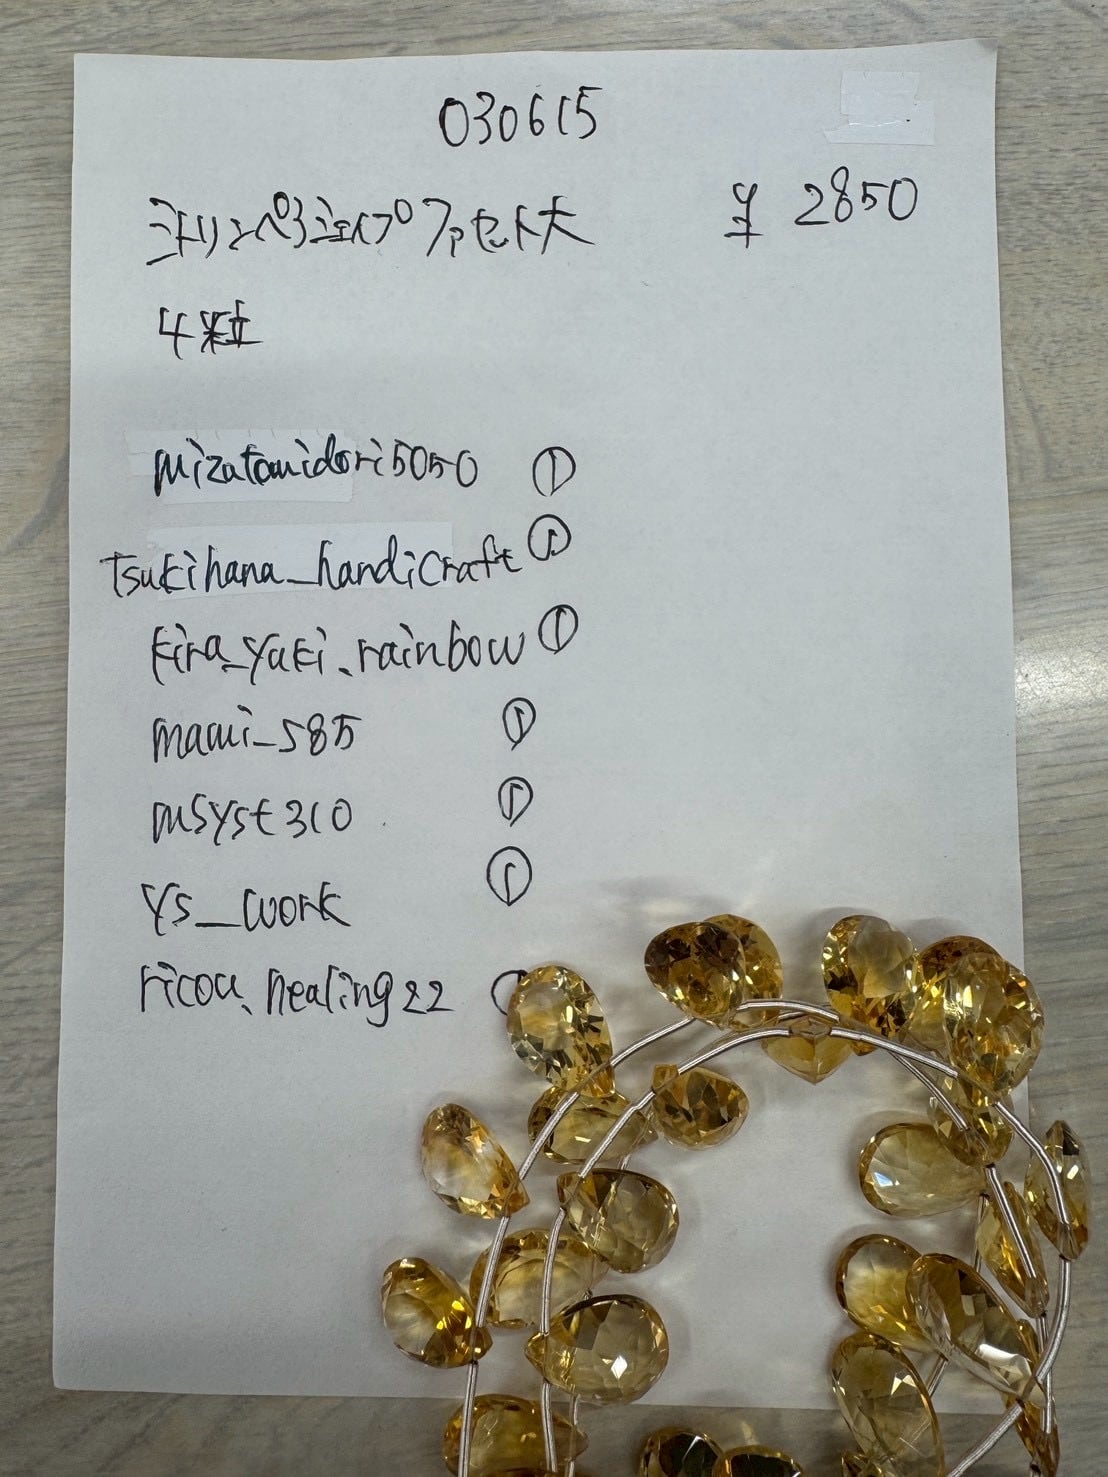 030615
シトリンペアシェイプファセット大 ¥2850
4粒
mizutamidori5050 ①
tsukihana_handicraft ①
kira_yuki.rainbow ①
mami_585 ①
msyst310 ①
ys_work ①
ricou.healing22